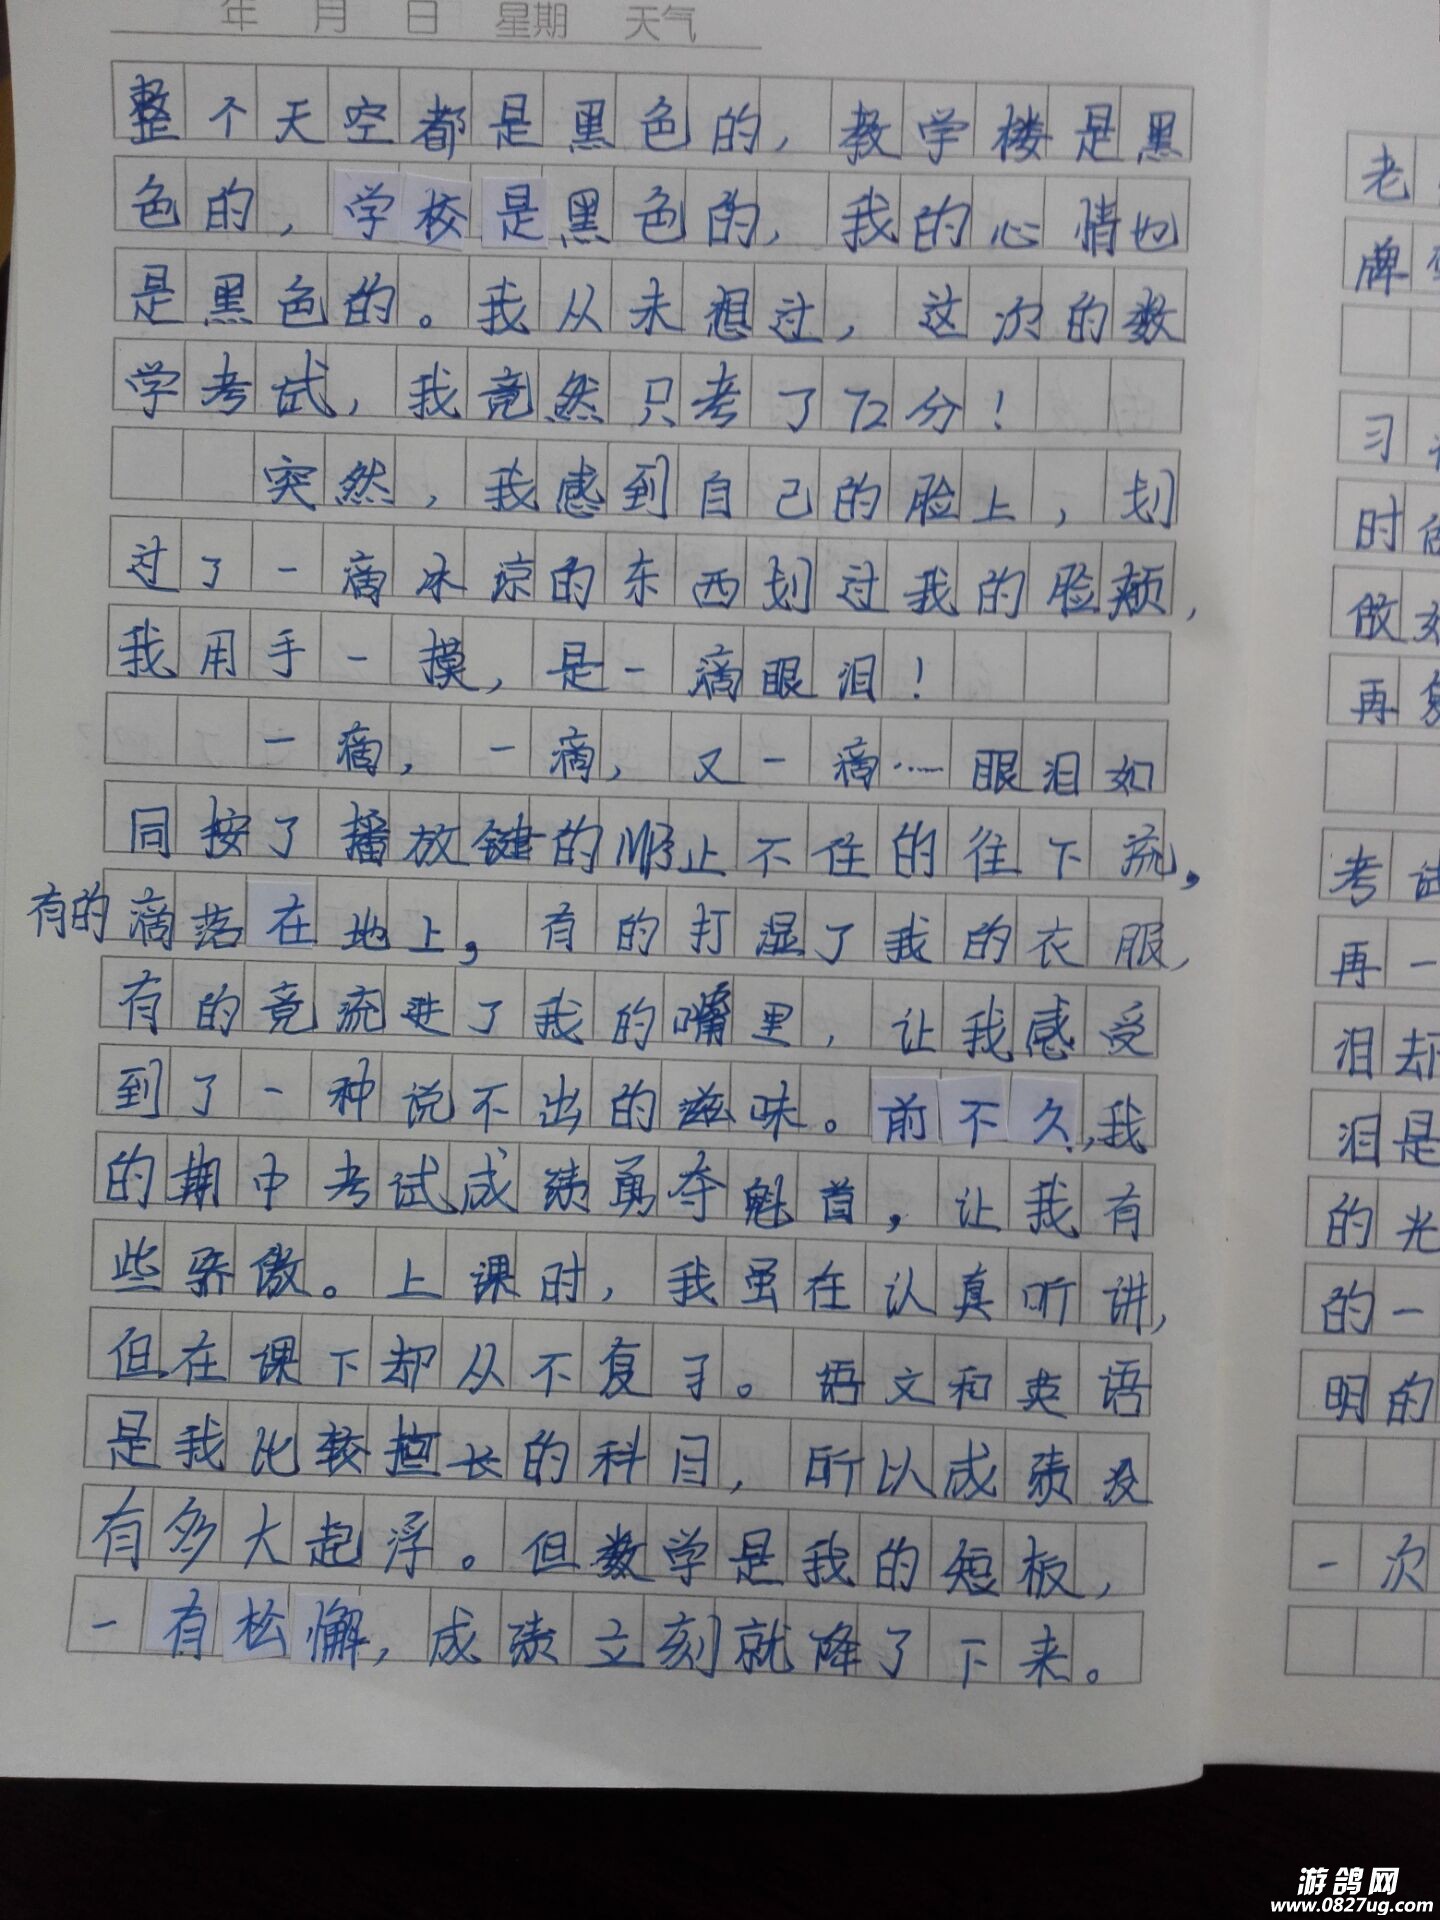 年 月 日 星期 天气
整个天空都是黑色的，教学楼是黑
色的，学校是黑色的，我的心情也
是黑色的。我从未想过，这次的数
学考试，我竟然只考了72分！
突然，我感到自己的脸上，划
过了一滴冰凉的东西划过我的脸颊，
我用手一摸，是一滴眼泪！
一滴，一滴，又一滴……眼泪如
同按了播放键的 止不住的往下流，
有的滴落在地上，有的打湿了我的衣服，
有的竟流进了我的嘴里，让我感受
到了一种说不出的滋味。前不久，我
的期中考试成绩勇夺魁首，让我有
些骄傲。上课时，我虽在认真听讲，
但在课下却从不复习。语文和英语
是我比较擅长的科目，所以成绩没
有多大起浮。但数学是我的短板，
一有松懈，成绩立刻就降了下来。
老
牌
习
时
做
再
考试
再一
泪却
泪是
的光
的一
明的
一次
游鸽网
www.0827ug.com